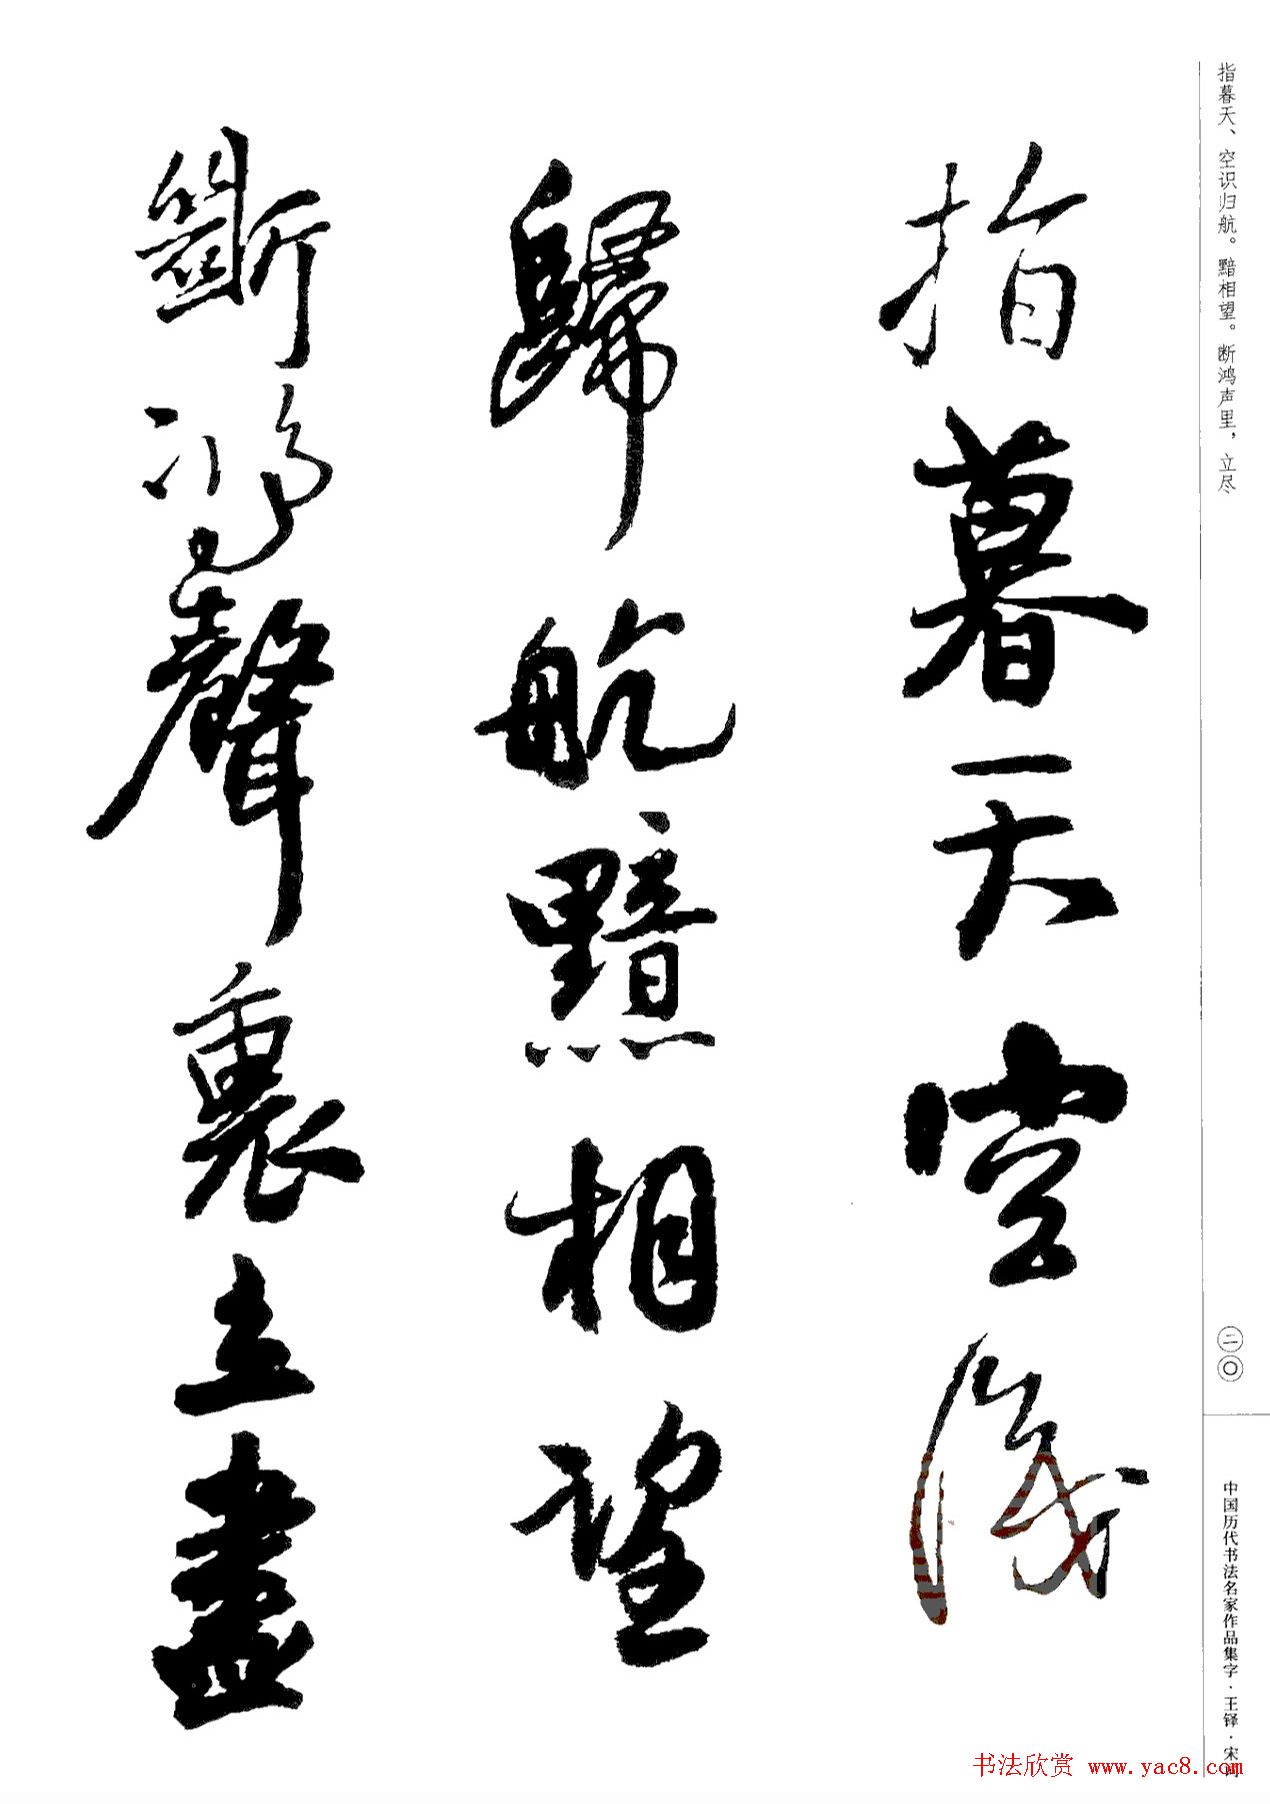 指暮天、空识归航。黯相望。断鸿声里，立尽
指暮天空識
歸航黯相望
斷鴻聲裏立盡
二〇
中国历代书法名家作品集字·王铎·宋词
书法欣赏 www.yac8.com